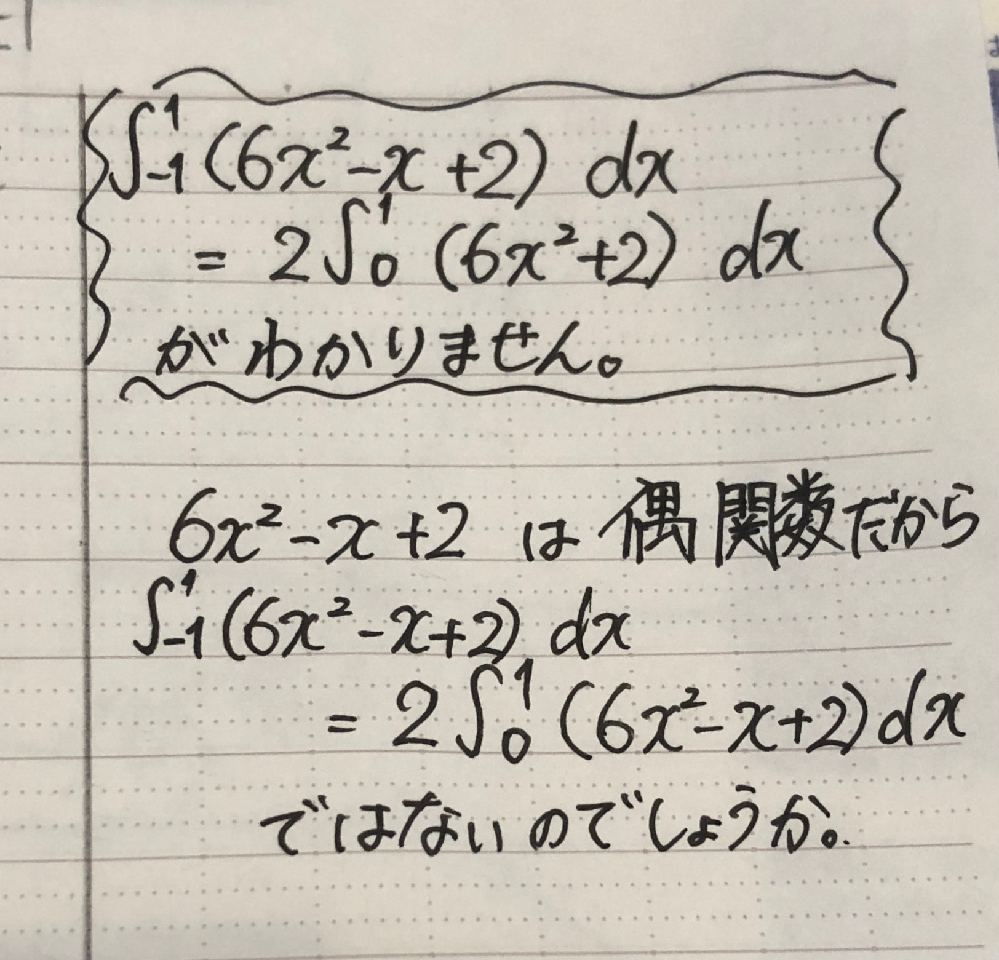 ∫₋₁¹ (6x²-x+2) dx
= 2∫₀¹ (6x²+2) dx
がわかりません。
6x²-x+2 は 偶関数だから
∫₋₁¹ (6x²-x+2) dx
= 2∫₀¹ (6x²-x+2) dx
ではないのでしょうか。